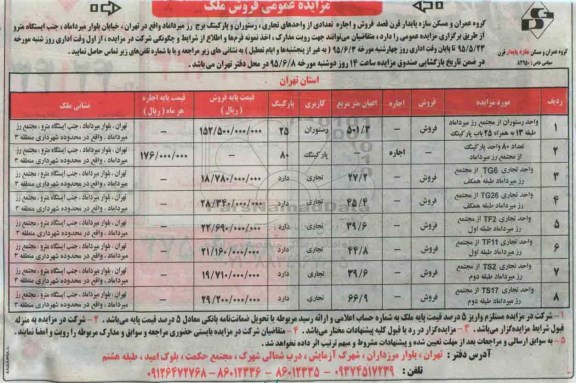 مزایده عمومی فروش ملک
گروه عمران و مسکن سازه پایدار قرن قصد فروش و اجاره تعدادی از واحدهای تجاری، رستوران و پارکینگ برج رز میرداماد واقع در تهران، خیابان بلوار میرداماد، جنب ایستگاه مترو
از طریق برگزاری مزایده عمومی را دارد، متقاضیان می‌توانند جهت رویت مدارک، اخذ نمونه فرم‌ها و اطلاع از شرایط و چگونگی شرکت در مزایده، از اول وقت اداری روز شنبه مورخه
۹۵/۵/۲۳ تا پایان وقت اداری روز چهارشنبه مورخه ۹۵/۶/۳ (به غیر از پنجشنبه‌ها و ایام تعطیل) به نشانی های زیر مراجعه و یا با شماره تلفن‌های زیر تماس حاصل نمایید.
در ضمن تاریخ بازگشایی صندوق مزایده ساعت ۱۴ روز دوشنبه مورخه ۹۵/۶/۸ در محل دفتر تهران می‌باشد.
گروه عمران و مسکن سازه پایدار قرن
استان تهران
ردیف مورد مزایده فروش اجاره اعیان متر مربع کاربری پارکینگ قیمت پایه فروش (ریال) قیمت پایه اجاره هر ماه (ریال) نشانی ملک
۱ واحد رستوران از مجتمع رز میرداماد طبقه ۱۳ به همراه ۲۵ باب پارکینگ فروش – ۵۰۱/۳ رستوران ۲۵ ۱۵۲/۵۰۰/۰۰۰/۰۰۰ – تهران، بلوار میرداماد، جنب ایستگاه مترو، مجتمع رز میرداماد، واقع در محدوده شهرداری منطقه ۳
۲ تعداد ۸۰ واحد پارکینگ از مجتمع رز میرداماد – اجاره – پارکینگ ۸۰ – ۱۷۶/۰۰۰/۰۰۰ تهران، بلوار میرداماد، جنب ایستگاه مترو، مجتمع رز میرداماد، واقع در محدوده شهرداری منطقه ۳
۳ واحد تجاری TG6 از مجتمع رز میرداماد طبقه همکف فروش – ۲۷/۲ تجاری دارد ۱۸/۷۸۰/۰۰۰/۰۰۰ – تهران، بلوار میرداماد، جنب ایستگاه مترو، مجتمع رز میرداماد، واقع در محدوده شهرداری منطقه ۳
۴ واحد تجاری TG26 از مجتمع رز میرداماد طبقه همکف فروش – ۴۵/۴ تجاری دارد ۲۸/۳۴۰/۰۰۰/۰۰۰ – تهران، بلوار میرداماد، جنب ایستگاه مترو، مجتمع رز میرداماد، واقع در محدوده شهرداری منطقه ۳
۵ واحد تجاری TF2 از مجتمع رز میرداماد طبقه اول فروش – ۳۹/۶ تجاری دارد ۲۲/۶۹۰/۰۰۰/۰۰۰ – تهران، بلوار میرداماد، جنب ایستگاه مترو، مجتمع رز میرداماد، واقع در محدوده شهرداری منطقه ۳
۶ واحد تجاری TF11 از مجتمع رز میرداماد طبقه اول فروش – ۴۴/۸ تجاری دارد ۲۱/۱۶۰/۰۰۰/۰۰۰ – تهران، بلوار میرداماد، جنب ایستگاه مترو، مجتمع رز میرداماد، واقع در محدوده شهرداری منطقه ۳
۷ واحد تجاری TS2 از مجتمع رز میرداماد طبقه دوم فروش – ۳۹/۶ تجاری دارد ۱۹/۷۱۰/۰۰۰/۰۰۰ – تهران، بلوار میرداماد، جنب ایستگاه مترو، مجتمع رز میرداماد، واقع در محدوده شهرداری منطقه ۳
۸ واحد تجاری TS17 از مجتمع رز میرداماد طبقه دوم فروش – ۶۶/۹ تجاری دارد ۲۹/۲۰۰/۰۰۰/۰۰۰ – تهران، بلوار میرداماد، جنب ایستگاه مترو، مجتمع رز میرداماد، واقع در محدوده شهرداری منطقه ۳
۱- شرکت در مزایده مستلزم واریز ۵ درصد قیمت پایه ملک به شماره حساب اعلامی و ارائه رسید مربوطه یا تحویل ضمانتنامه بانکی معادل ۵ درصد قیمت پایه می‌باشد. ۲- شرکت در مزایده به منزله
قبول شرایط مزایده‌گزار می‌باشد. ۳- مزایده‌گزار در رد یا قبول کلیه پیشنهادات مختار می‌باشد. ۴- متقاضیان شرکت در مزایده بایستی حضوری مراجعه و سوابق و مدارک مربوطه را رویت و امضا نمایند.
۵- به سوابق ارسالی و مراجعات بعد از مهلت تعیین شده و پیشنهادات مشروط و مبهم ترتیب اثر داده نخواهد شد.
آدرس دفتر: تهران، بلوار مرزداران، شهرک آزمایش، درب شمالی شهرک، مجتمع حکمت، بلوک امید، طبقه هشتم
تلفن: ۰۹۳۷۴۵۱۷۲۳۹ – ۸۶۰۱۲۳۳۵ – ۸۶۰۱۲۳۳۶ – ۰۹۱۲۶۴۷۲۷۶۸